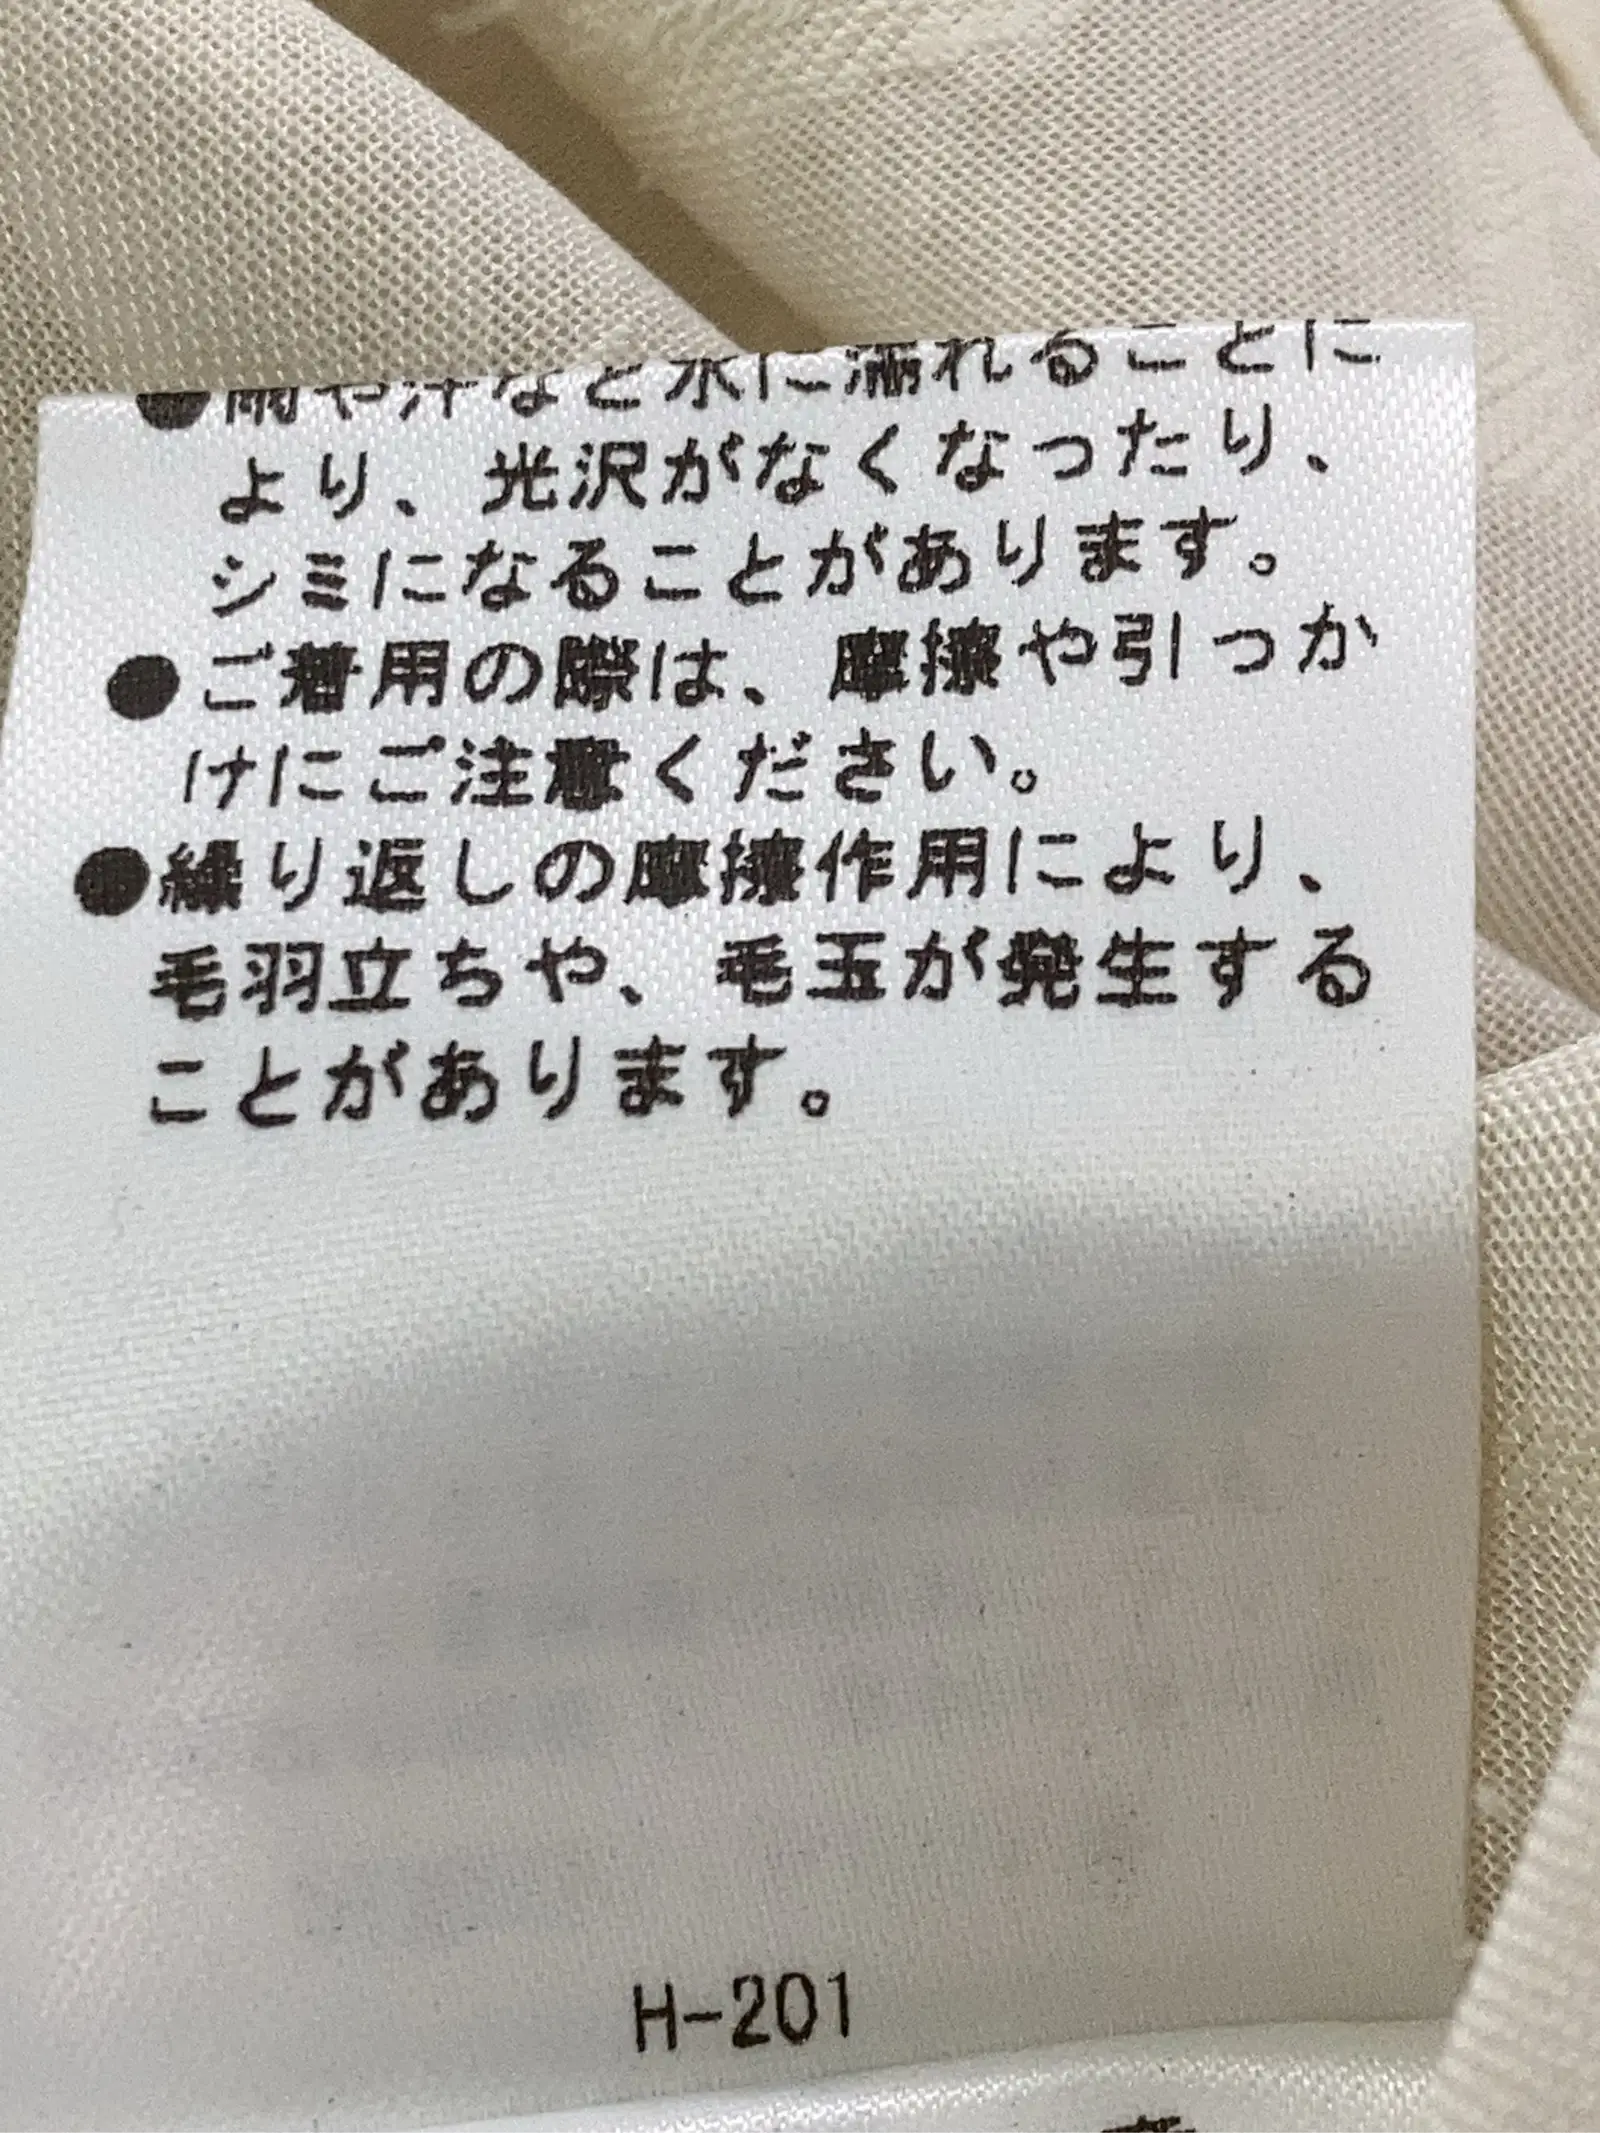 ●雨や汗など水に濡れることに
より、光沢がなくなったり、
シミになることがあります。
●ご着用の際は、摩擦や引っか
けにご注意ください。
●繰り返しの摩擦作用により、
毛羽立ちや、毛玉が発生する
ことがあります。
H-201